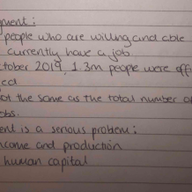 ment:
people who are willing and able
currently have a job
october 2019, 1.3m people were off
ed
ot the same as the total number o
bs.
ent is a serious problem:
come and production
human capital